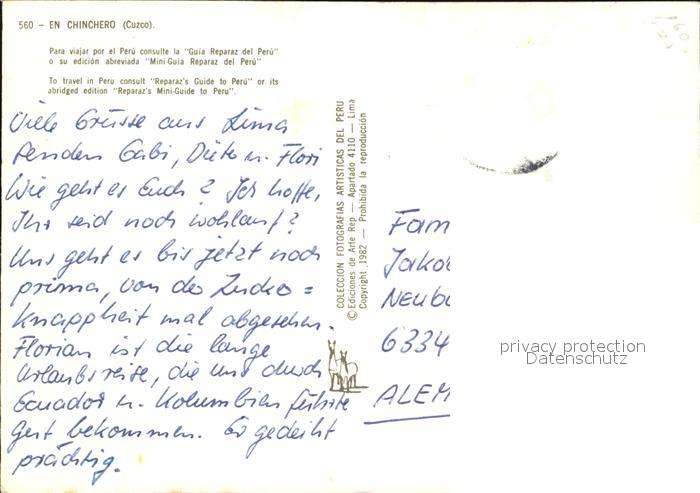 560 – EN CHINCHERO (Cuzco).
Para viajar por el Perú consulte la "Guía Reparaz del Perú"
o su edición abreviada "Mini-Guía Reparaz del Perú"
To travel in Peru consult "Reparaz's Guide to Perú" or its
abridged edition "Reparaz's Mini-Guide to Peru".
Viele Grüsse aus Lima
senden Gabi, Dieter u. Flori
Wie geht es Euch? Ich hoffe,
Ihr seid noch wohlauf?
Uns geht es bis jetzt noch
prima, von der Zucker=
knappheit mal abgesehen.
Florian ist die lange
Urlaubsreise, die uns durch
Ecuador u. Kolumbien führte
gut bekommen. Er gedeiht
prächtig.
COLECCION FOTOGRAFIAS ARTISTICAS DEL PERU
© Ediciones de Arte Rep — Apartado 4110 — Lima
Copyright, 1982 — Prohibida la reproducción
Fam
Jako
Neuba
6334
ALEM
privacy protection
Datenschutz